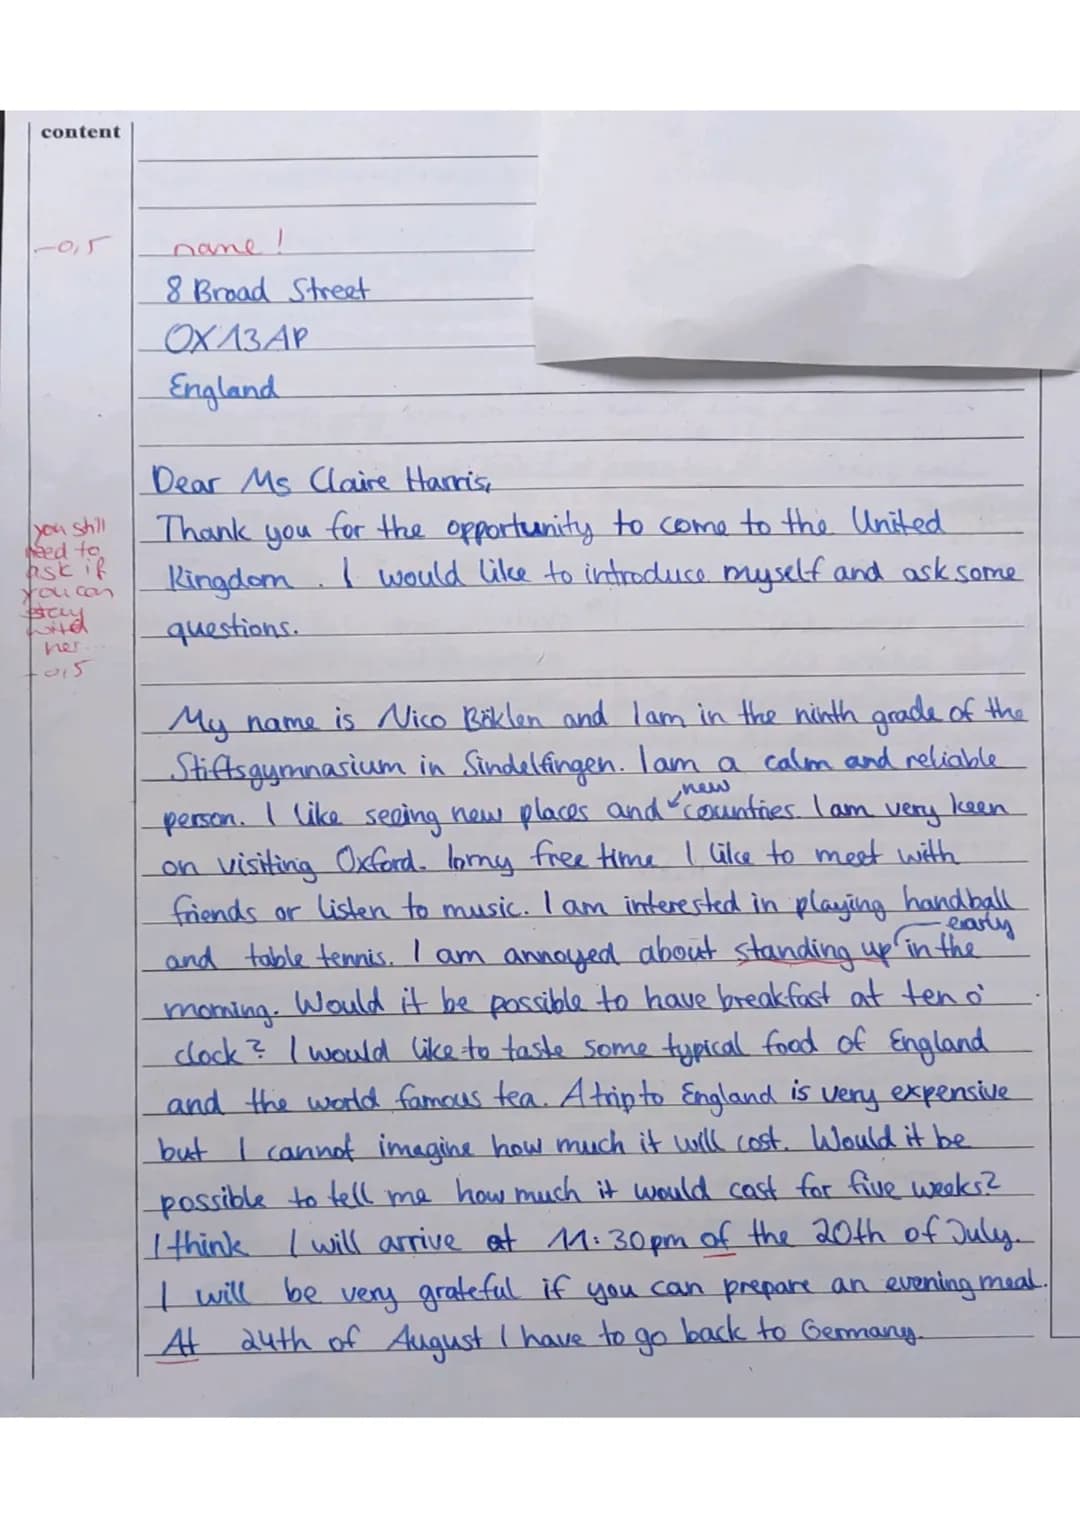 content
-0,5
name!
8 Broad Street
OX13AP
England
Dear Ms Claire Harris,
you still
need to
ask if
you can
stay
with
her
-0,5
Thank you for the opportunity to come to the United
Kingdom. I would like to introduce myself and ask some
questions.
My name is Nico Böklen and I am in the ninth grade of the
Stiftsgymnasium in Sindelfingen. I am a calm and reliable
new
person. I like seeing new places and countries. I am very keen
on visiting Oxford. In my free time I like to meet with
friends or listen to music. I am interested in playing handball
early
and table tennis. I am annoyed about standing up in the
morning. Would it be possible to have breakfast at ten o'
clock? I would like to taste some typical food of England
and the world famous tea. A trip to England is very expensive
but I cannot imagine how much it will cost. Would it be
possible to tell me how much it would cost for five weeks?
I think I will arrive at 11:30pm of the 20th of July.
I will be very grateful if you can prepare an evening meal.
At 24th of August I have to go back to Germany.